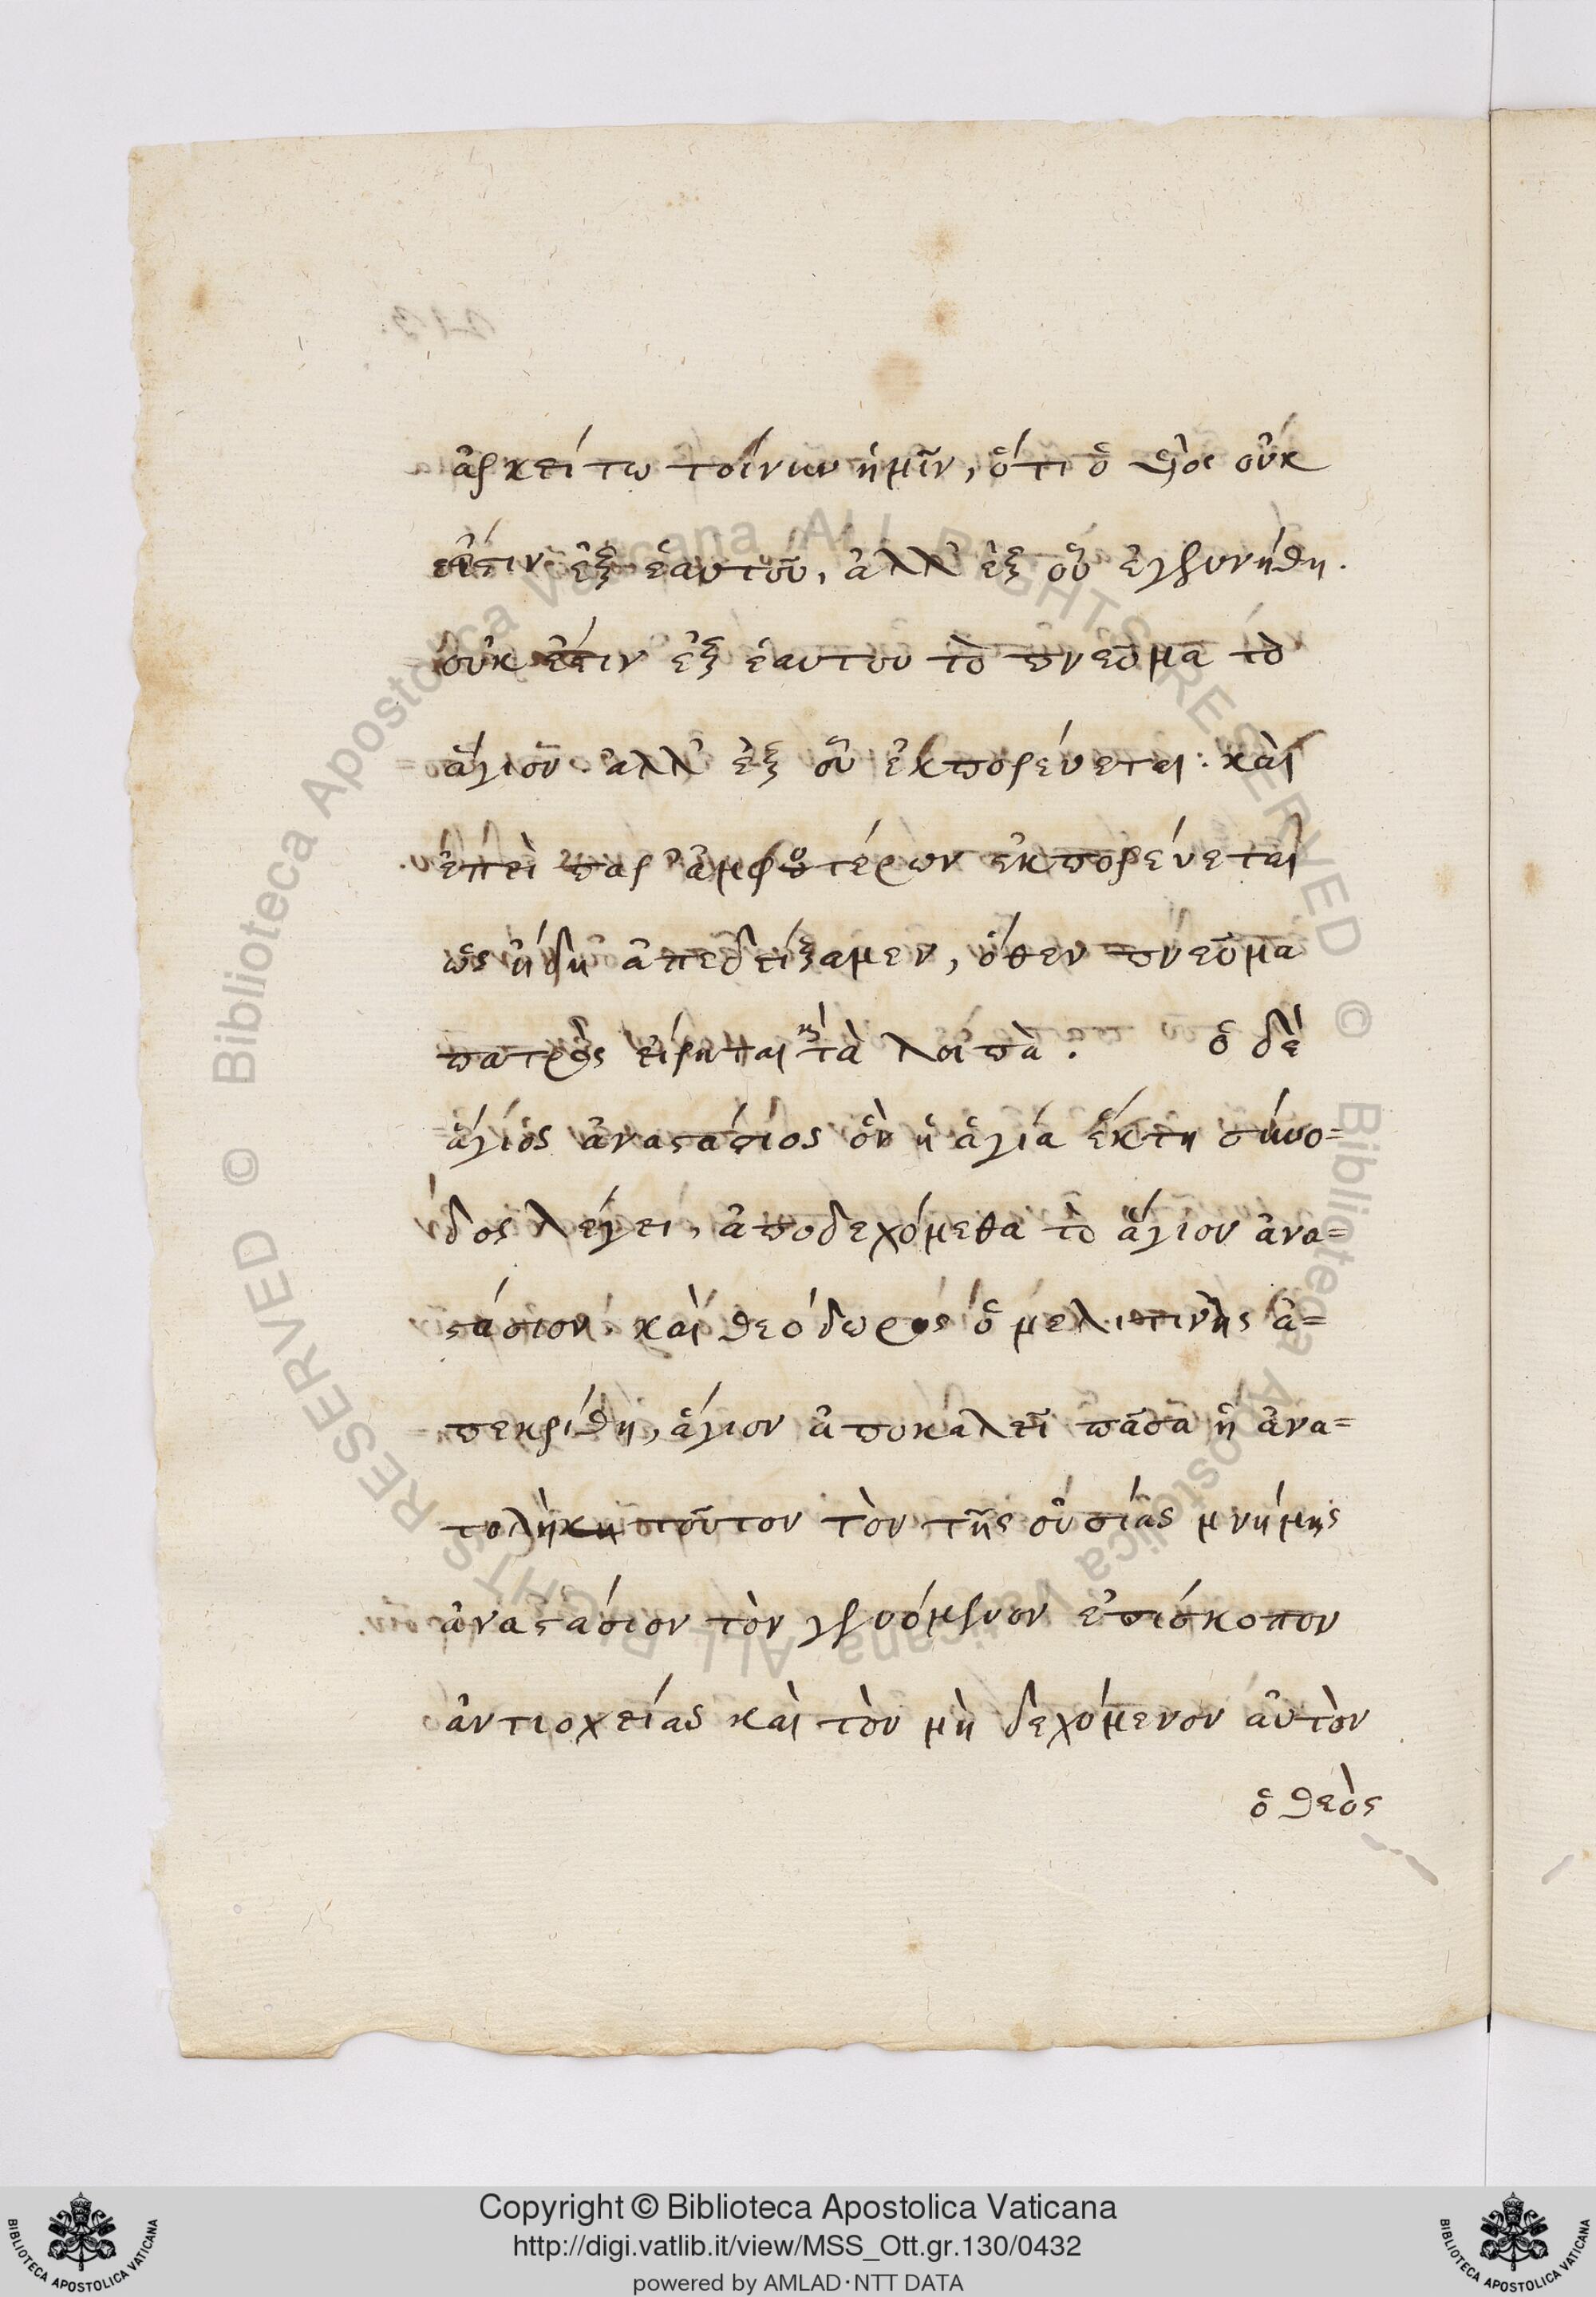 ἀρκείτω τοίνυν ἡμῖν, ὅτι ὁ υἱὸς οὐκ
ἔστιν ἐξ ἑαυτοῦ, ἀλλ' ἐξ οὗ ἐγεννήθη.
οὐκ ἔστιν ἐξ ἑαυτοῦ τὸ πνεῦμα τὸ
ἅγιον ἀλλ' ἐξ οὗ ἐκπορεύεται· καὶ
ἐπεὶ παρ' ἀμφοτέρων ἐκπορεύεται
ὡς ἤδη ἀπεδείξαμεν, ὅθεν πνεῦμα
πατρὸς εἴρηται κ̀ τὰ λοιπὰ. ὁ δὲ
ἅγιος ἀναστάσιος ὃν ἡ ἁγία ἕκτη σύνο=
δος λέγει, ἀποδεχόμεθα τὸ ἅγιον ἀνα=
στάσιον, καὶ θεόδωρος ὁ μελιτινῆς ἀ=
πεκρίθη, ἅγιον ἀποκαλεῖ πᾶσα ἡ ἀνα=
τολὴκη τοῦτον τὸν τῆς οὐσίας μνήμης
ἀναστάσιον τὸν γενόμενον ἐπίσκοπον
ἀντιοχείας καὶ τὸν μὴ δεχόμενον αὐτὸν
ὁ θεὸς
© Biblioteca Apostolica Vaticana ALL RIGHTS RESERVED
© Biblioteca Apostolica Vaticana ALL RIGHTS RESERVED
Copyright © Biblioteca Apostolica Vaticana
http://digi.vatlib.it/view/MSS_Ott.gr.130/0432
powered by AMLAD·NTT DATA
BIBLIOTECA APOSTOLICA VATICANA
BIBLIOTECA APOSTOLICA VATICANA